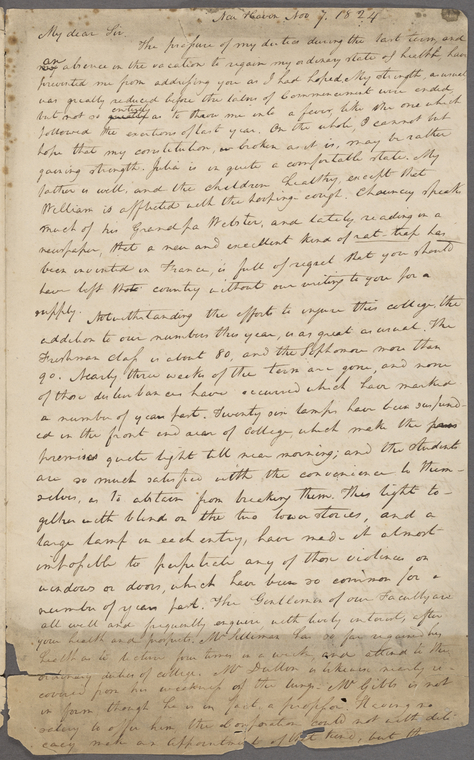 New Haven Nov 7. 1824
My dear Sir,
The pressure of my duties during the last term, and
an absence in the vacation to regain my ordinary state of health, have
prevented me from addressing you as I had hoped. My strength, as usual
was greatly reduced before the labors of Commencement were ended,
entirely
but not so greatly as to throw me into a fever, like the one which
followed the exertions of last year. On the whole, I cannot but
hope that my constitution, broken as it is, may be rather
gaining strength. Julia is in quite a comfortable state. My
father is well, and the children healthy, except that
William is afflicted with the hooping cough. Chauncey speaks
much of his Grandpa Webster, and lately reading in a
newspaper, that a new and excellent kind of rat-trap has
been invented in France, is full of regret that you should
have left that country without our writing to you for a
supply.
Notwithstanding the efforts to injure this college, the
addition to our numbers this year, is as great as usual. The
Freshman Class is about 80, and the Sophomore more than
90. Nearly three weeks of the term are gone, and none
of those disturbances have occurred which have marked
a number of years past. Twenty six lamps have been suspend-
ed in the front and rear of College, which make the
premises quite light till near morning; and the Students
are so much satisfied with the convenience to them-
selves, as to abstain from breaking them. This light to-
gether with blinds on the two lower stories, and a
large lamp in each entry, have made it almost
impossible to perpetrate any of those violences on
windows or doors, which have been so common for a
number of years past. The Gentlemen of our Faculty are
all well and frequently enquire with lively interest, after
your health and prospects. Mr Silliman has so far regained his
health as to lecture four times in a week, and attend to the
ordinary duties of college. Mr Dutton is likewise nearly re-
covered from his weakness of the lungs. Mr Gibbs is not
in form, though he is in fact, a professor. Having no
salary to offer him, the Corporation could not with deli-
cacy make an appointment of that kind, but